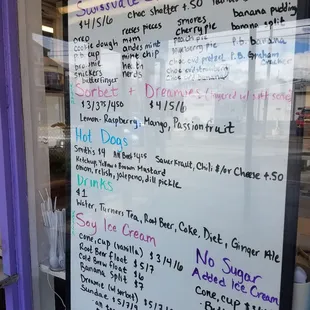 $4/5/6 choc shatter +.50
oreo reeses pieces smores banana pudding
cookie dough m&m cherry pie banana split
p.b. cup andes mint p.b. banana
brownie mint chip
snickers heath
butterfinger nerds
Sorbet + Dreamies (layered w/ soft serve)
$3/3.75/4.50 $4/5/6
Lemon, Raspberry, Mango, Passionfruit
Hot Dogs
Smith's $4 All Beef $4.25 Sauerkraut, Chili $/or Cheese +.50
Ketchup, Yellow + Brown Mustard
onion, relish, jalapeno, dill pickle
Drinks
$1
Water, Turners Tea, Root Beer, Coke, Diet, Ginger Ale
Soy Ice Cream
cone, cup (vanilla) $3/4/6
Root Beer float $5/7
Cold Brew float $6
Banana Split $7
Dreamie (w/ sorbet) $5/7
Sundae $5/7/9
No Sugar
Added Ice Cream
Cone, cup